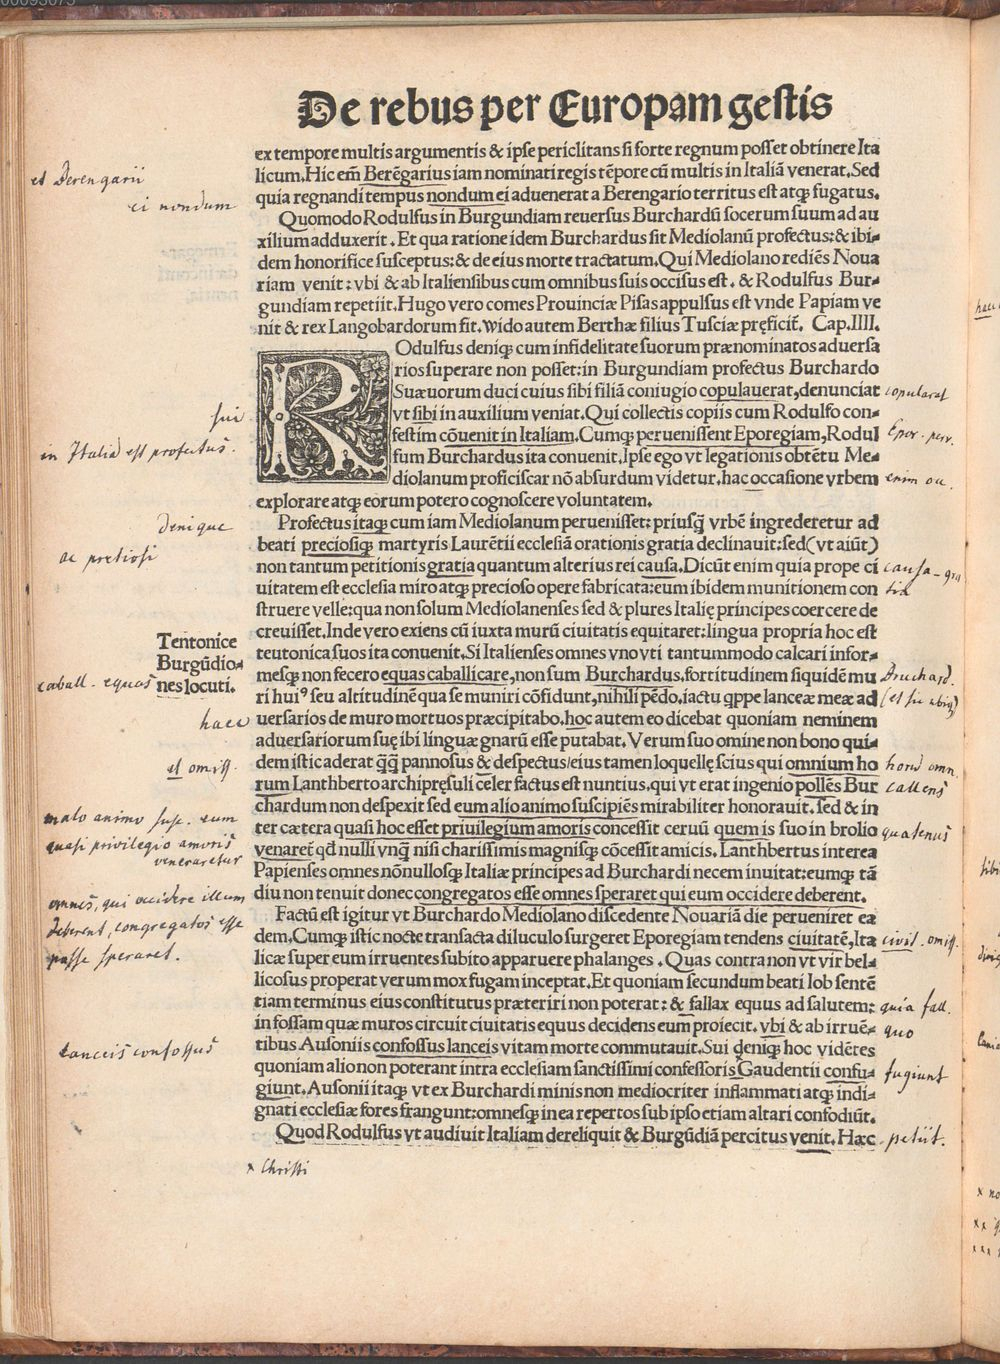 De rebus per Europam gestis
ex tempore multis argumentis & ipse periclitans si forte regnum posset obtinere Ita
licum. Hic em̄ Berēgarius iam nominati regis tēpore cū multis in Italiā venerat. Sed
quia regnandi tempus nondum ei aduenerat a Berengario territus est atq; fugatus.
et Berengarii
ei nondum
Quomodo Rodulfus in Burgundiam reuersus Burchardū socerum suum ad au
xilium adduxerit. Et qua ratione idem Burchardus sit Mediolanū profectus: & ibi⸗
dem honorifice susceptus: & de eius morte tractatum. Qui Mediolano rediēs Noua
riam venit: vbi & ab Italiensibus cum omnibus suis occisus est. & Rodulfus Bur⸗
gundiam repetiit. Hugo vero comes Prouinciæ Pisas appulsus est vnde Papiam ve
nit & rex Langobardorum fit. Wido autem Berthæ filius Tusciæ pręficit̄. Cap. IIII.
ROdulfus deniq; cum infidelitate suorum prænominatos aduersa
rios superare non posset: in Burgundiam profectus Burchardo
Suæuorum duci cuius sibi filiā coniugio copulauerat, denunciat
vt sibi in auxilium veniat. Qui collectis copiis cum Rodulfo con⸗
festim cōuenit in Italiam. Cumq; peruenissent Eporegiam, Rodul
fum Burchardus ita conuenit. Ipse ego vt legationis obtētu Me⸗
diolanum proficiscar nō absurdum videtur. hac occasione vrbem
explorare atq; eorum potero cognoscere voluntatem.
copularat
sui
in Italiā est profectus.
Epor. perv.
enim oc.
Profectus itaq; cum iam Mediolanum peruenisset: priusq̄ vrbē ingrederetur ad
beati preciosiq; martyris Laurētii ecclesiā orationis gratia declinauit: sed (vt aiūt)
non tantum petitionis gratia quantum alterius rei causa. Dicūt enim quia prope ci
uitatem est ecclesia miro atq; precioso opere fabricata: eum ibidem munitionem con
struere velle: qua non solum Mediolanenses sed & plures Italię principes coercere de
creuisset. Inde vero exiens cū iuxta murū ciuitatis equitaret: lingua propria hoc est
teutonica suos ita conuenit. Si Italienses omnes vno vti tantummodo calcari infor⸗
mesq; non fecero equas caballicare, non sum Burchardus. fortitudinem siquidē mu
ri huiꝰ seu altitudinē qua se muniri cōfidunt, nihili pēdo. iactu q̄ppe lanceæ meæ ad
uersarios de muro mortuos præcipitabo. hoc autem eo dicebat quoniam neminem
aduersariorum suę ibi linguæ gnarū esse putabat. Verum suo omine non bono qui⸗
dem istic aderat q̄q̄ pannosus & despectus/ eius tamen loquellę scius qui omnium ho
rum Lanthberto archipręsuli celer factus est nuntius. qui vt erat ingenio pollēs Bur
chardum non despexit sed eum alio animo suscipiēs mirabiliter honorauit. sed & in
ter cætera quasi hoc esset priuilegium amoris concessit ceruū quem is suo in brolio
venaret̄ qd̄ nulli vnq̄ nisi charissimis magnisq; cōcessit amicis. Lanthbertus interea
Papienses omnes nōnullosq; Italiæ principes ad Burchardi necem inuitat: eumq; tā
diu non tenuit donec congregatos esse omnes speraret qui eum occidere deberent.
Denique
ac pretiosi
causa - gra
tia
Tentonice
Burgūdio⸗
nes locuti.
caball. equos
Bruchard.
(et sic ubiq;)
haec
et omiss.
horū omn.
callens
malo animo susc. eum
quasi privilegio amoris
veneraretur
quatenus
omnes, qui occidere illum
deberent, congregatos esse
posse speraret.
Factū est igitur vt Burchardo Mediolano discedente Nouariā die perueniret ea
dem. Cumq; istic nocte transacta diluculo surgeret Eporegiam tendens ciuitatē, Ita
licæ super eum irruentes subito apparuere phalanges. Quas contra non vt vir bel⸗
licosus properat verum mox fugam inceptat. Et quoniam secundum beati Iob sentē
tiam terminus eius constitutus præteriri non poterat: & fallax equus ad salutem:
in fossam quæ muros circuit ciuitatis equus decidens eum proiecit. vbi & ab irruē⸗
tibus Ausoniis confossus lanceis vitam morte commutauit. Sui deniq; hoc vidētes
quoniam alio non poterant intra ecclesiam sanctissimi confessoris Gaudentii confu⸗
giunt. Ausonii itaq; vt ex Burchardi minis non mediocriter inflammati atq; indi⸗
gnati ecclesiæ fores frangunt: omnesq; in ea repertos sub ipso etiam altari confodiūt.
Quod Rodulfus vt audiuit Italiam dereliquit & Burgūdiā percitus venit. Hæc
civit. omiss.
quia fall.
quo
lanceis confossus
fugiunt
petiit.
x Christi